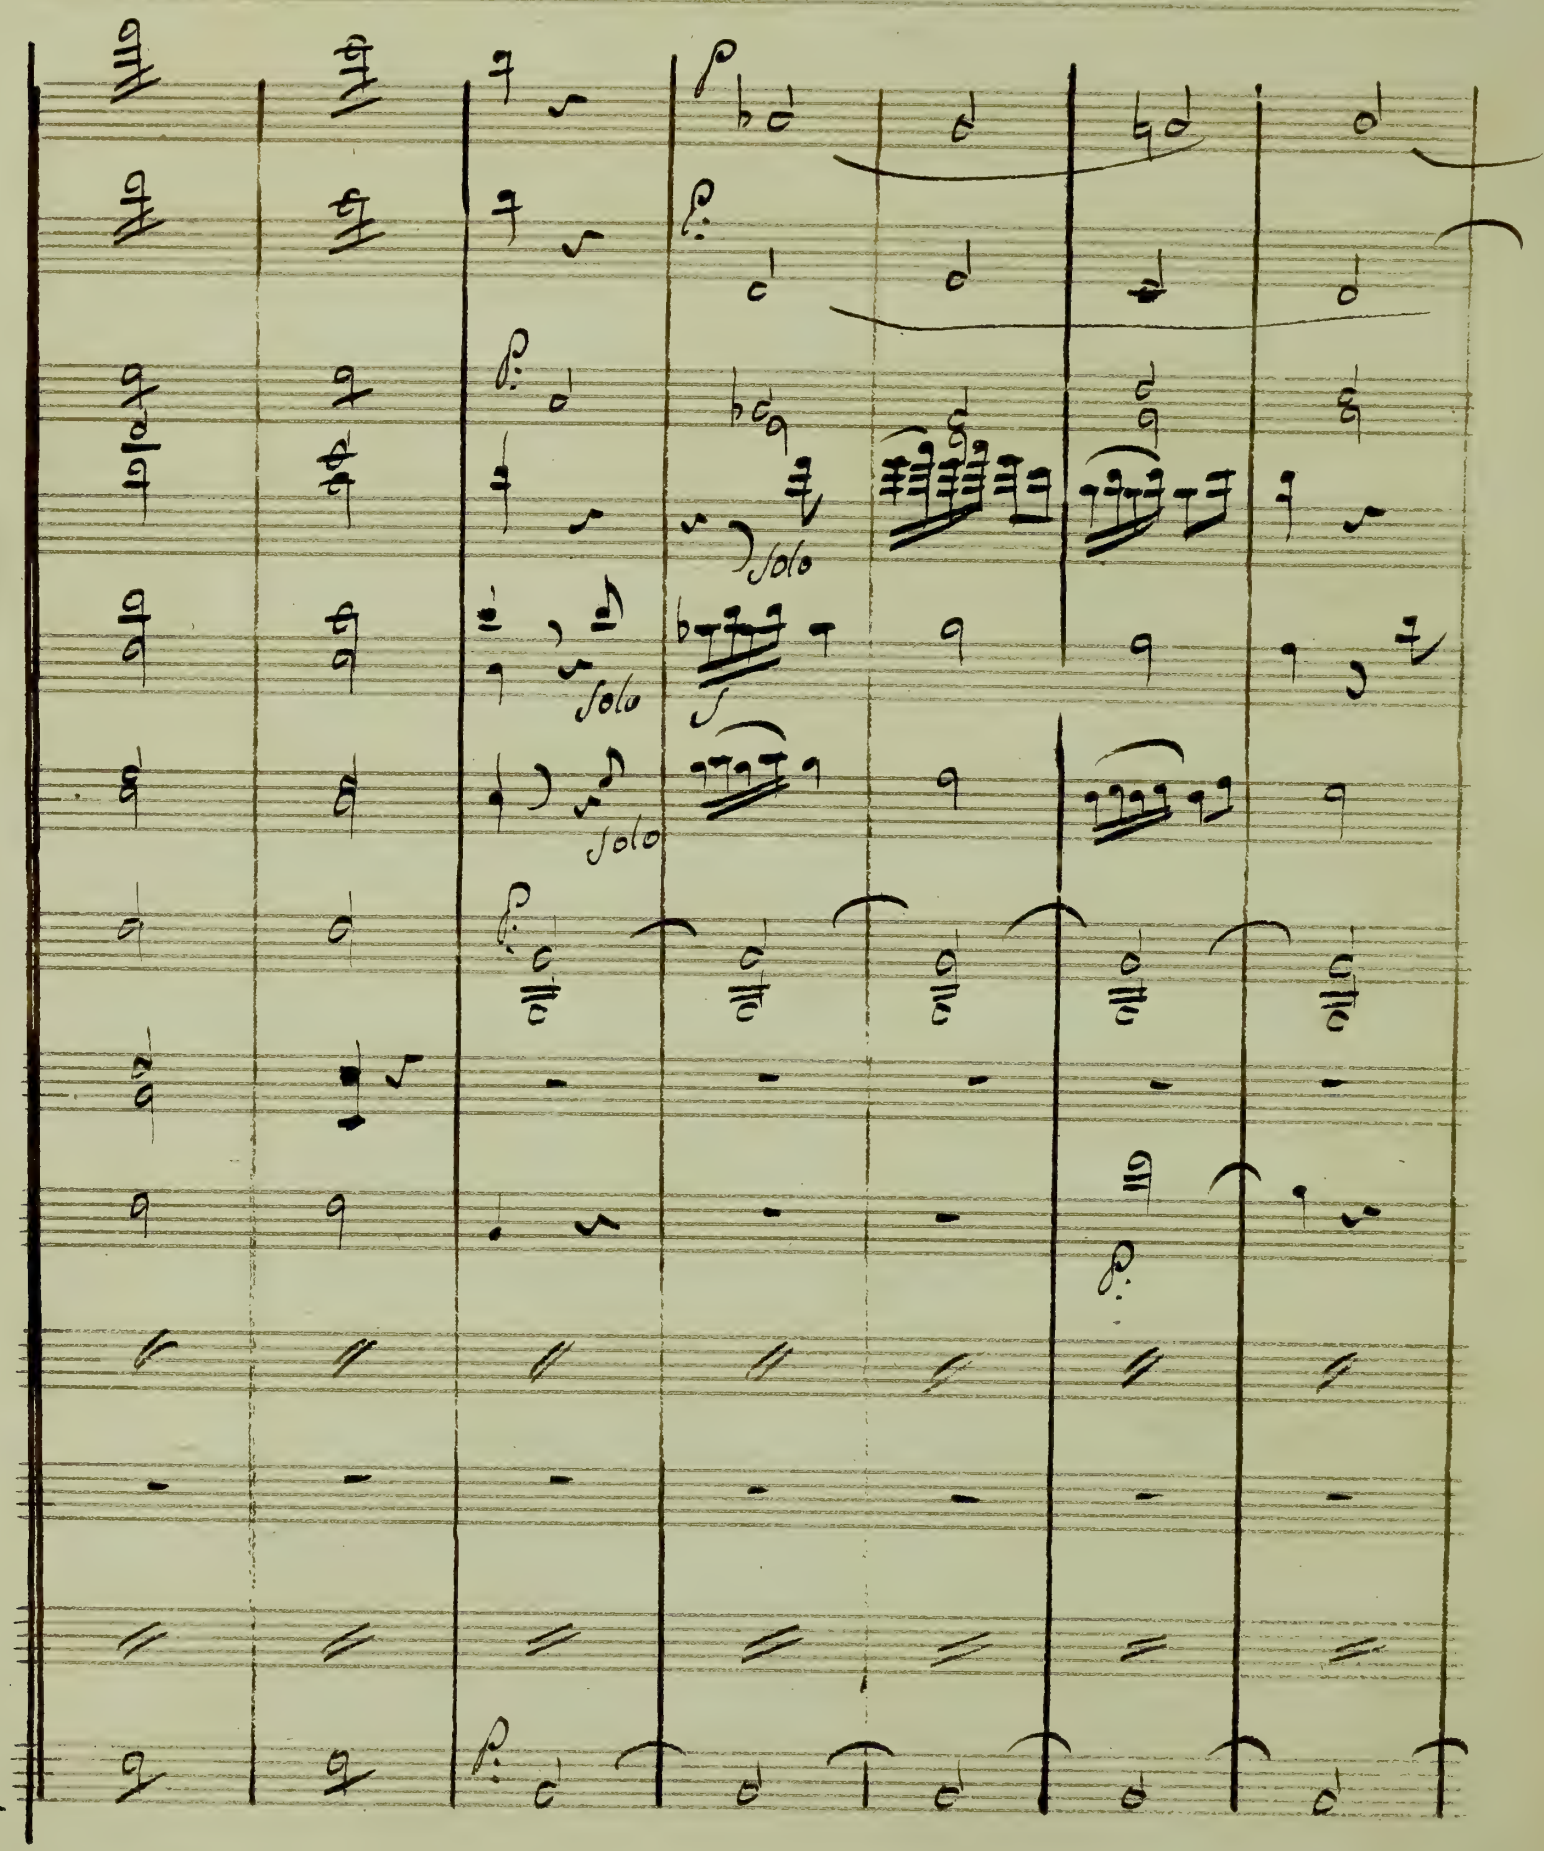 p
p:
p:
solo
solo
solo
p:
p:
p: